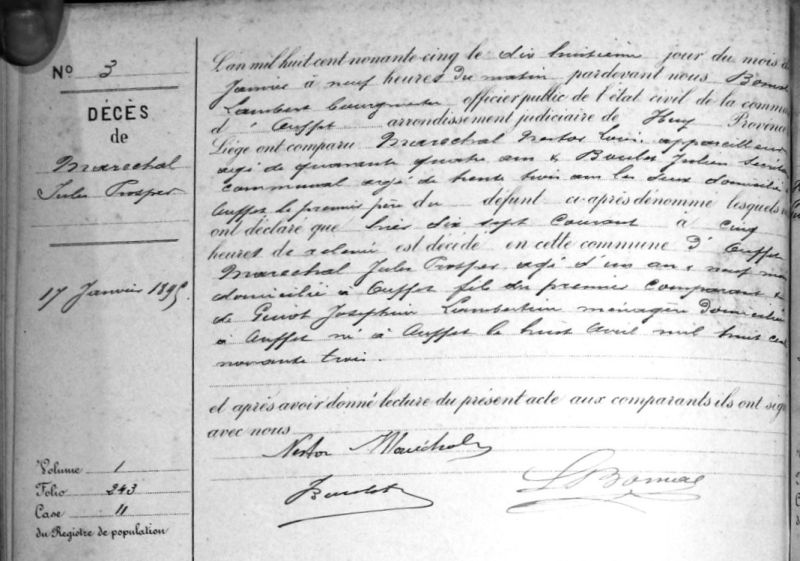 No 3
DÉCÈS
de
Marechal
Jules Prosper
17 Janvier 1895
Volume 1
Folio 243
Case 11
du Registre de population
L'an mil huit cent nonante-cinq le dix huitième jour du mois d
Janvier à neuf heures du matin pardevant nous
Lambert bourgmestre officier public de l'état civil de la commun
d' Ouffet arrondissement judiciaire de Huy Province
Liége ont comparu Marechal Nestor Louis appareilleur
agé de quarante quatre ans & Boulet Julien
communal agé de trente trois ans les deux domicilié
Ouffet le premier père du défunt ci-après dénommé lesquels
ont déclaré que hier dix sept courant à cinq
heures de relevée est décédé en cette commune d' Ouffet
Marechal Jules Prosper agé d'un an & neuf moi
domicilié à Ouffet fils du premier comparant &
de Joséphine Lambertine ménagère domiciliée
à Ouffet né à Ouffet le huit avril mil huit cent
nonante trois.
et après avoir donné lecture du présent acte aux comparants ils ont sig
avec nous
Nestor Maréchal
Boulet